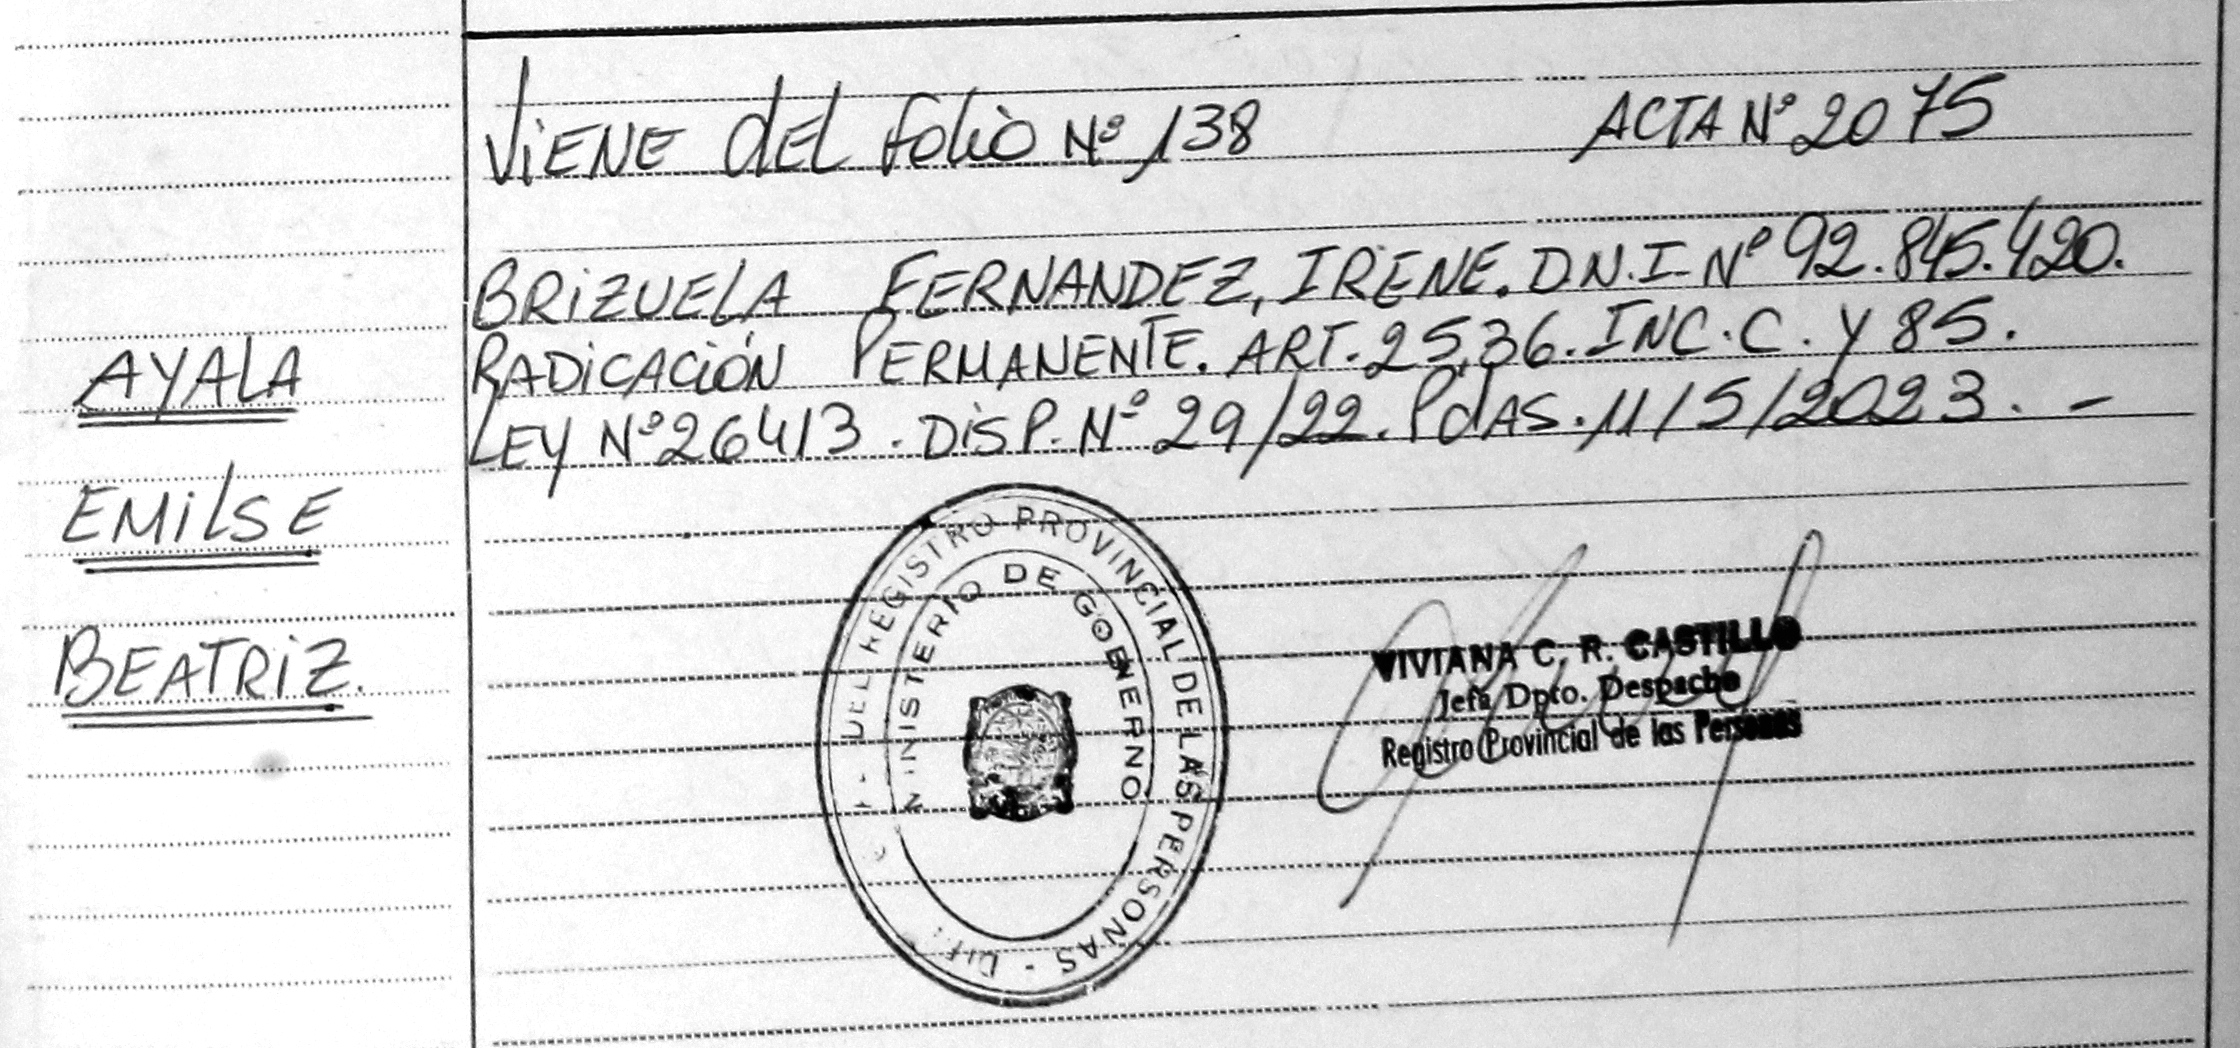 ViENE dEL foLio Nº 138
ACTA Nº 2075
BRiZUELA FERNANDEZ, IRENE. D.N.I. Nº 92.845.420.
RADiCACiÓN PERMANENTE. ART. 25,36. INC. C. Y 85.
LEY Nº 26413. DiSP. Nº 29/22. PdAS. 11/5/2023. -
AYALA
EMiLSE
BEATRiZ.
DEL REGISTRO PROVINCIAL DE LAS PERSONAS -
MINISTERIO DE GOBIERNO
VIVIANA C. R. CASTILLO
Jefa Dpto. Despacho
Registro Provincial de las Personas